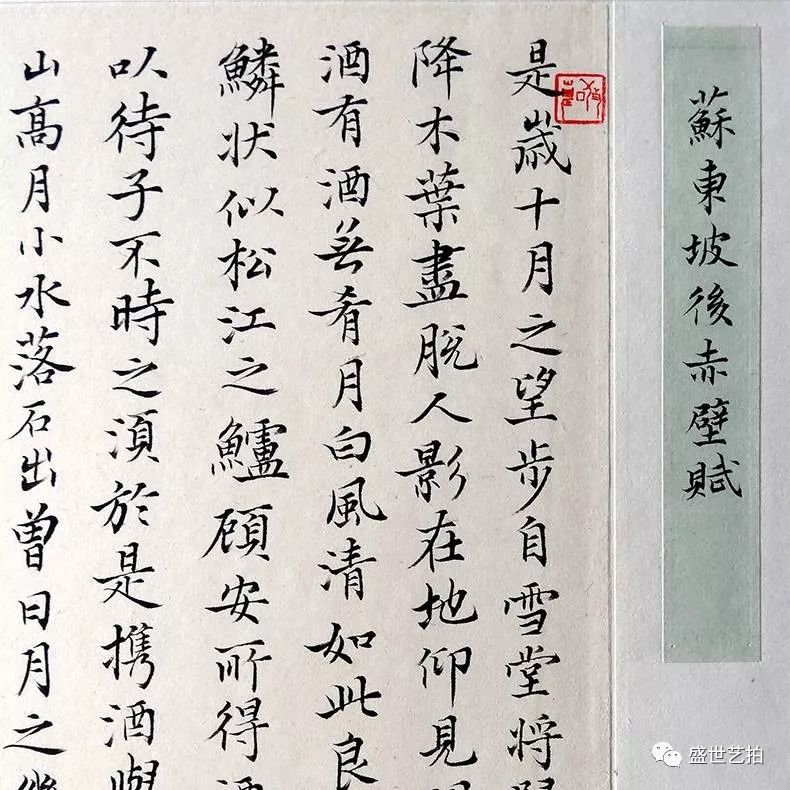 蘇東坡後赤壁賦
是歲十月之望步自雪堂將
降木葉盡脫人影在地仰見
酒有酒無肴月白風清如此良
鱗状似松江之鱸顧安所得
以待子不時之湏於是携酒與
山高月小水落石出曾日月之
盛世艺拍